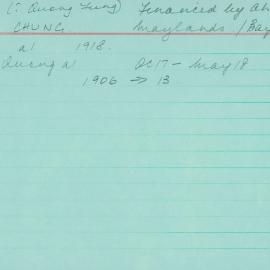 (? Quong Fung) Financed by Ah
CHUNG Maylands / Bay
a1 1918.
Quong a1 Oc 17 - May 18
1906 → 13